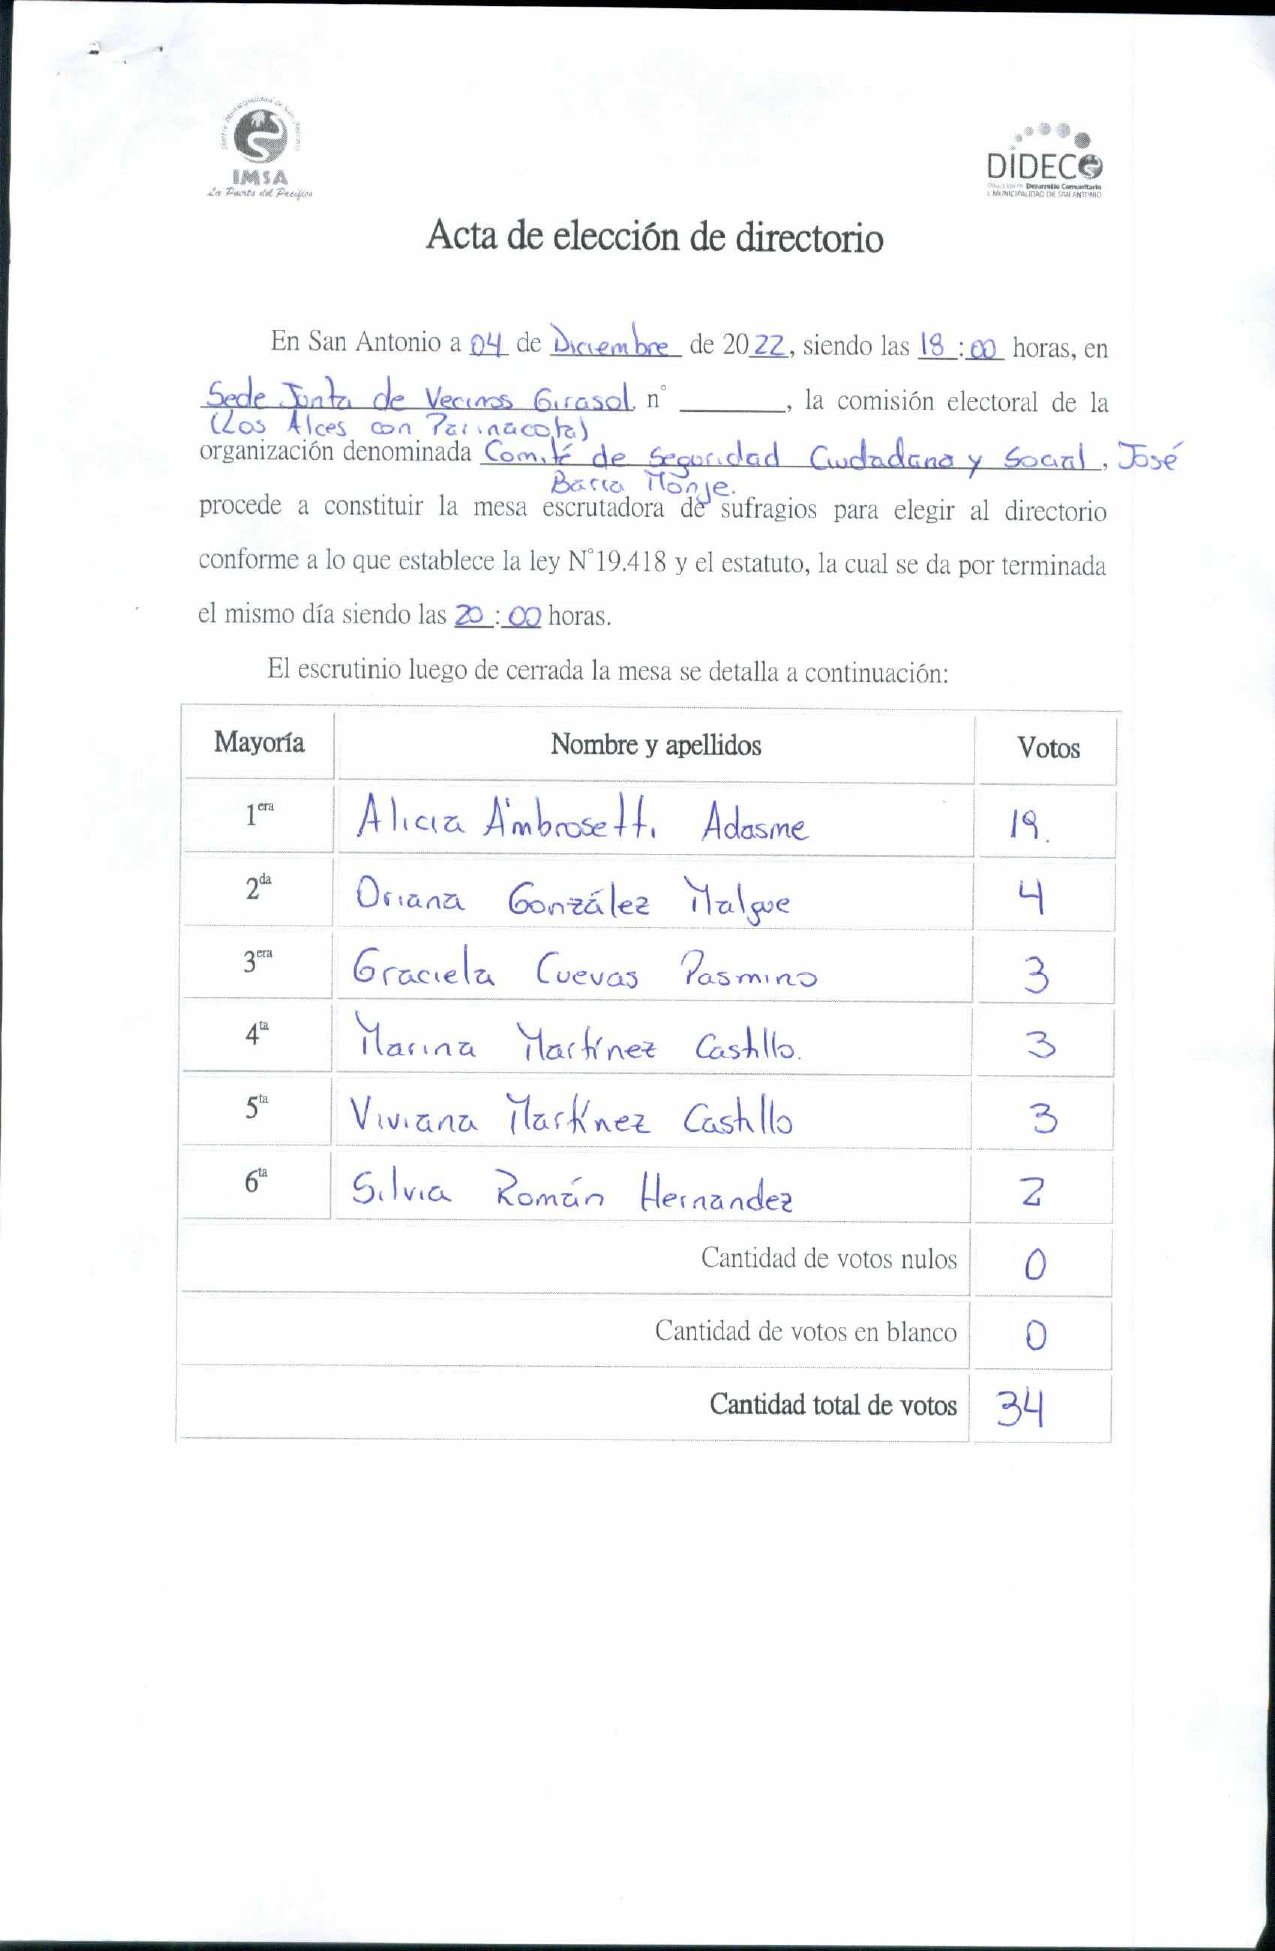 IMSA
La Puerta del Pacífico
DIDECO
Desarrollo Comunitario
I. MUNICIPALIDAD DE SAN ANTONIO
Acta de elección de directorio
En San Antonio a 04 de Diciembre de 2022, siendo las 18:00 horas, en
Sede Junta de Vecinos Girasol n° ______, la comisión electoral de la
(Los Alces con Parinacota)
organización denominada Comité de Seguridad Ciudadana y Social, José
Barra Monje.
procede a constituir la mesa escrutadora de sufragios para elegir al directorio
conforme a lo que establece la ley N°19.418 y el estatuto, la cual se da por terminada
el mismo día siendo las 20:00 horas.
El escrutinio luego de cerrada la mesa se detalla a continuación:
Mayoría Nombre y apellidos Votos
1era Alicia Ambrosetti Adasme 19.
2da Oriana González Malgue 4
3era Graciela Cuevas Pasmino 3
4ta Marina Martínez Castillo. 3
5ta Viviana Martínez Castillo 3
6ta Silvia Román Hernandez 2
Cantidad de votos nulos 0
Cantidad de votos en blanco 0
Cantidad total de votos 34